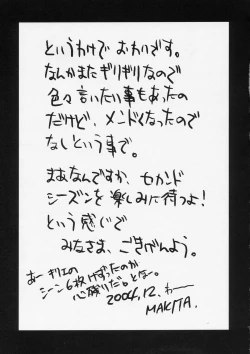 というわけで おわりです。
なんかまたギリギリなので
色々言いたい事もあったの
だけど、メンドくなったので
なしという事で。
まあなんですか、セカンド
シーズンを楽しみに待つよ!
という感じで
みなさま、ごきげんよう。
あー
シーン6枚けずったのが
心残りだ。となー。
2004.12.
MAKITA.